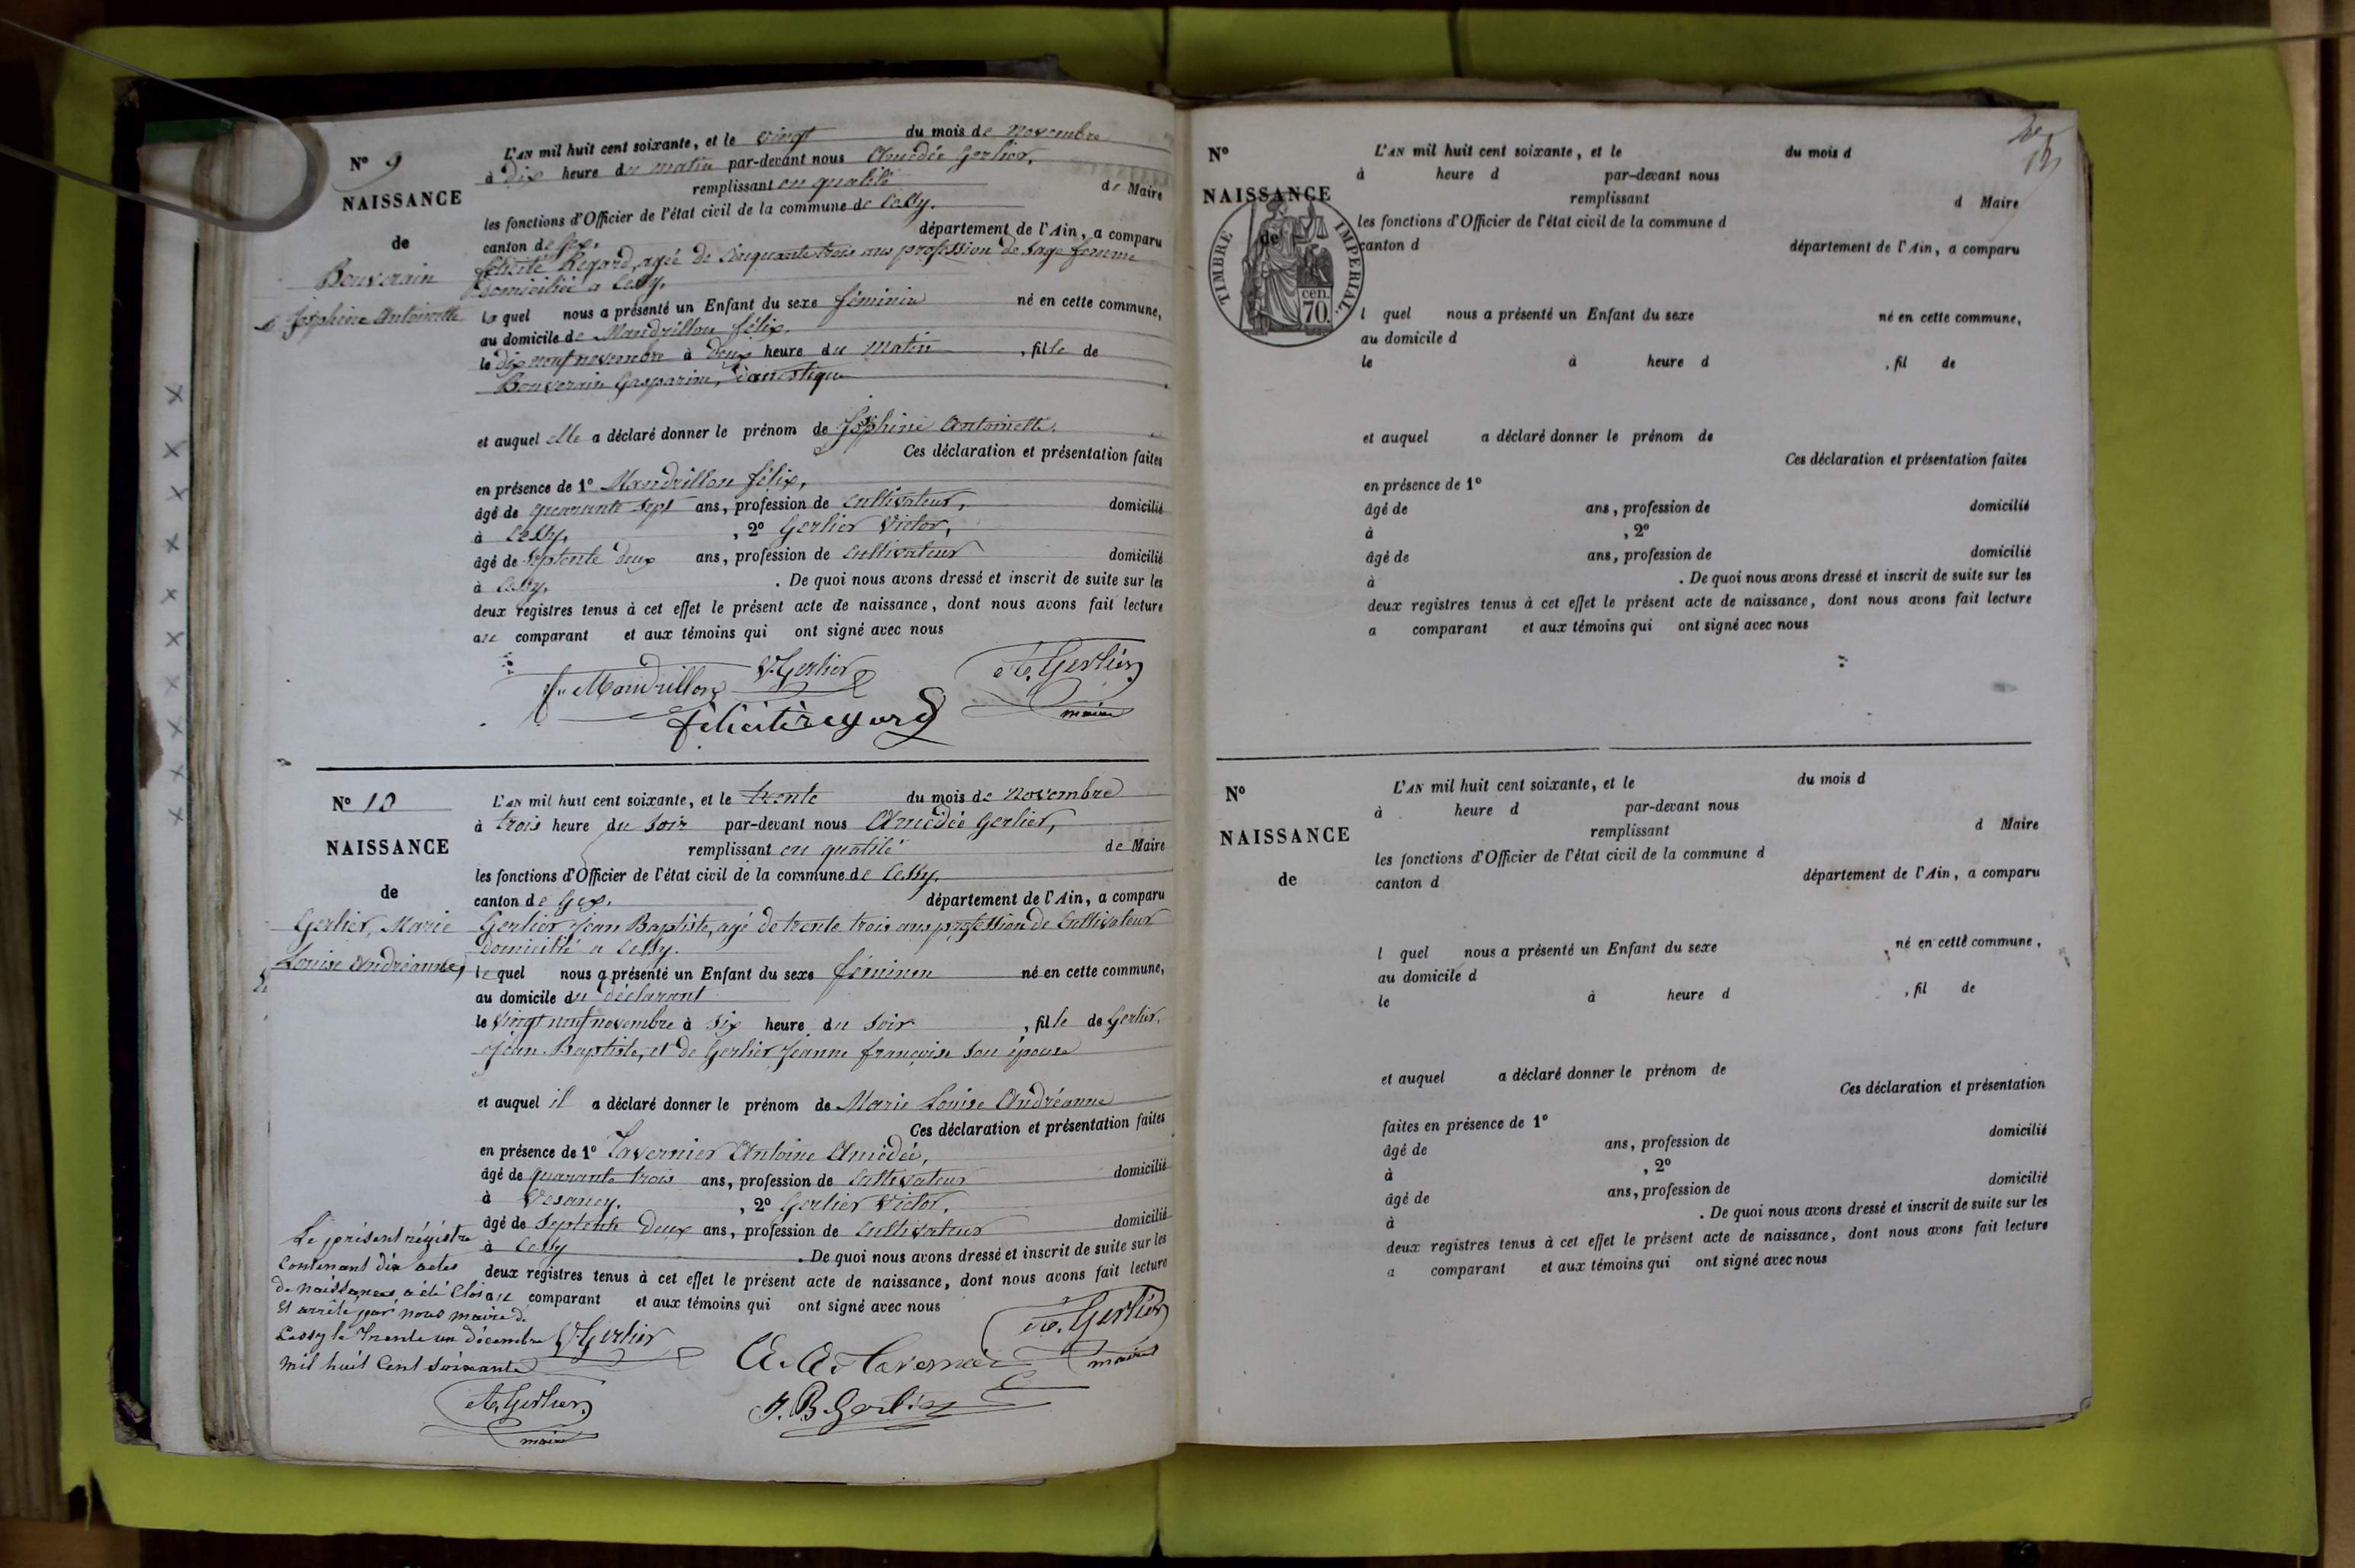 N° 9
NAISSANCE
de
Bouverain
Joséphine Antoinette
L'AN mil huit cent soixante, et le vingt du mois de novembre
à dix heure du matin par-devant nous Amédée Gerlier,
remplissant en qualité de Maire
les fonctions d'Officier de l'état civil de la commune de Cessy.
canton de Gex. département de l'Ain, a comparu
félicité Regard, agée de Cinquante trois ans profession de Sage femme
domiciliée a Cessy.
laquel nous a présenté un Enfant du sexe féminin né en cette commune,
au domicile de Mandrillon félix.
le dix neuf novembre à deux heure du matin , fille de
Bouverain Gasparine, domestique
et auquel elle a déclaré donner le prénom de Joséphine Antoinette.
Ces déclaration et présentation faites
en présence de 1° Mandrillon félix,
âgé de quarante sept ans, profession de cultivateur, domicilié
à Cessy, , 2° Gerlier Victor,
âgé de septente deux ans, profession de Cultivateur domicilié
à Cessy, . De quoi nous avons dressé et inscrit de suite sur les
deux registres tenus à cet effet le présent acte de naissance, dont nous avons fait lecture
au comparant et aux témoins qui ont signé avec nous
V. Gerlier
A. Gerlier
Mandrillon
maire
félicité regard
N° 10
NAISSANCE
de
Gerlier, Marie
Louise Andréanne,
L'AN mil huit cent soixante, et le trente du mois de novembre
à trois heure du soir par-devant nous Amédée Gerlier,
remplissant en qualité de Maire
les fonctions d'Officier de l'état civil de la commune de Cessy.
canton de Gex. département de l'Ain, a comparu
Gerlier Jean Baptiste, agé de trente trois ans profession de Cultivateur
domicilié a Cessy.
lequel nous a présenté un Enfant du sexe féminin né en cette commune,
au domicile du déclarant
le vingt neuf novembre à six heure du soir , fille de Gerlier,
Jean Baptiste, et de Gerlier Jeanne françoise son épouse
et auquel il a déclaré donner le prénom de Marie Louise Andréanne
Ces déclaration et présentation faites
en présence de 1° Tavernier Antoine Amédée,
âgé de quarante trois ans, profession de Cultivateur domicilié
à Vesancy. , 2° Gerlier Victor,
âgé de septente deux ans, profession de cultivateur domicilié
à Cessy . De quoi nous avons dressé et inscrit de suite sur les
deux registres tenus à cet effet le présent acte de naissance, dont nous avons fait lecture
au comparant et aux témoins qui ont signé avec nous
Le présent régistre
contenant dix actes
de naissances, a été Clos
et arrêté par nous maire de
Cessy le trente un décembre
mil huit Cent soixante
V. Gerlier
A. Gerlier
maire
A. A. Tavernier
A. Gerlier
maire
J. B. Gerlier
N°
NAISSANCE
de
TIMBRE IMPERIAL.
cen.
70.
L'AN mil huit cent soixante, et le du mois d
à heure d par-devant nous
remplissant d Maire
les fonctions d'Officier de l'état civil de la commune d
canton d département de l'Ain, a comparu
l quel nous a présenté un Enfant du sexe né en cette commune,
au domicile d
le à heure d , fil de
et auquel a déclaré donner le prénom de
Ces déclaration et présentation faites
en présence de 1°
âgé de ans, profession de domicilié
à , 2°
âgé de ans, profession de domicilié
à . De quoi nous avons dressé et inscrit de suite sur les
deux registres tenus à cet effet le présent acte de naissance, dont nous avons fait lecture
a comparant et aux témoins qui ont signé avec nous
N°
NAISSANCE
de
L'AN mil huit cent soixante, et le du mois d
à heure d par-devant nous
remplissant d Maire
les fonctions d'Officier de l'état civil de la commune d
canton d département de l'Ain, a comparu
l quel nous a présenté un Enfant du sexe né en cette commune,
au domicile d
le à heure d , fil de
et auquel a déclaré donner le prénom de
Ces déclaration et présentation
faites en présence de 1°
âgé de ans, profession de domicilié
à , 2°
âgé de ans, profession de domicilié
à . De quoi nous avons dressé et inscrit de suite sur les
deux registres tenus à cet effet le présent acte de naissance, dont nous avons fait lecture
a comparant et aux témoins qui ont signé avec nous